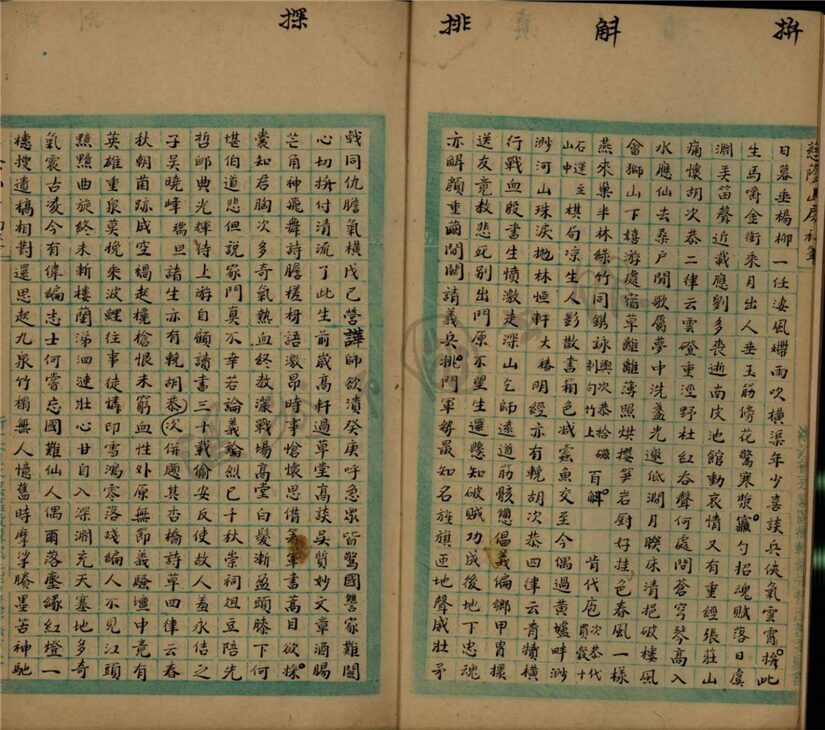 拚
斛
排
慈蔭山房
日暮垂楊柳一任淒風囀雨吹橫渠年少喜談兵俠氣雲霄拚此
生馬嚼金銜乘月出人垂玉筋傍花驚寒漿斝勺招魂賦落日虞
淵美笛聲近哉應劉多喪逝南皮池館動哀情又有重經張莊山
痛懷胡次恭二律云雲磴重逕野杜紅舂聲何處問蒼穹琴高入
水應仙去桑戶聞歌屬夢中洗盞光邀低澗月聯床清挹破樓風
會獅山下嬉游處宿草離離薄照烘攫笋岩廚好挂色春風一樣
燕來巢半林綠竹同鐫詠與次恭拾磁刺句竹上百斛肯代庖次恭代買穀十
石運至山中棋局凉生人影散書籍色減蠹魚交至今偶過黃壚畔渺
渺河山珠淚拋林恒軒大椿明經亦有輓胡次恭四律云青犢橫
行戰血殷書生憤激走深山乞師遠道筋骸憊倡義偏鄉甲冑擐
送友竟教悲死別出門原不望生還懸知破賊功成後地下忠魂
亦解顏重繭間關請義兵排門軍勢最知名旌旗匝地聲威壯矛
探
戟同仇膽氣橫戊己營譁師欲潰癸庚呼急眾皆驚國讐家難關
心切拚付清流了此生前歲高軒過草堂高談吳質妙文章酒腸
芒角神飛舞詩膽槎枒語激昂時事愴懷思借箸軍書蒿目欲探
囊知君胸次多奇氣熱血終教灑戰場高堂白髮漸盈頭膝下何
堪伯道悲但說家門真不幸若論義輪烈已千秋崇祠俎豆陪先
哲郎典光輝待上游自顧讀書三十載偷安反使故人羞永佶之
子吳曉峰瑞旦諸生亦有輓胡恭次併題其杏橋詩草四律云春
秋朝菌跡成空禍起欃槍恨未窮血性外原無節義驗壇中竟有
英雄重泉莫挽來波鯉往事徒憐印雪鴻零落殘編人不見江頭
黯黯曲旋終未斬樓蘭涕泗連壯心甘自入深淵充天塞地多奇
氣震古凌今有偉編志士何嘗忘國難仙人偶爾落塵緣紅燈一
穗搜遺稿相對還思起九泉竹梢無人憶舊時摩挲賸墨苦神馳